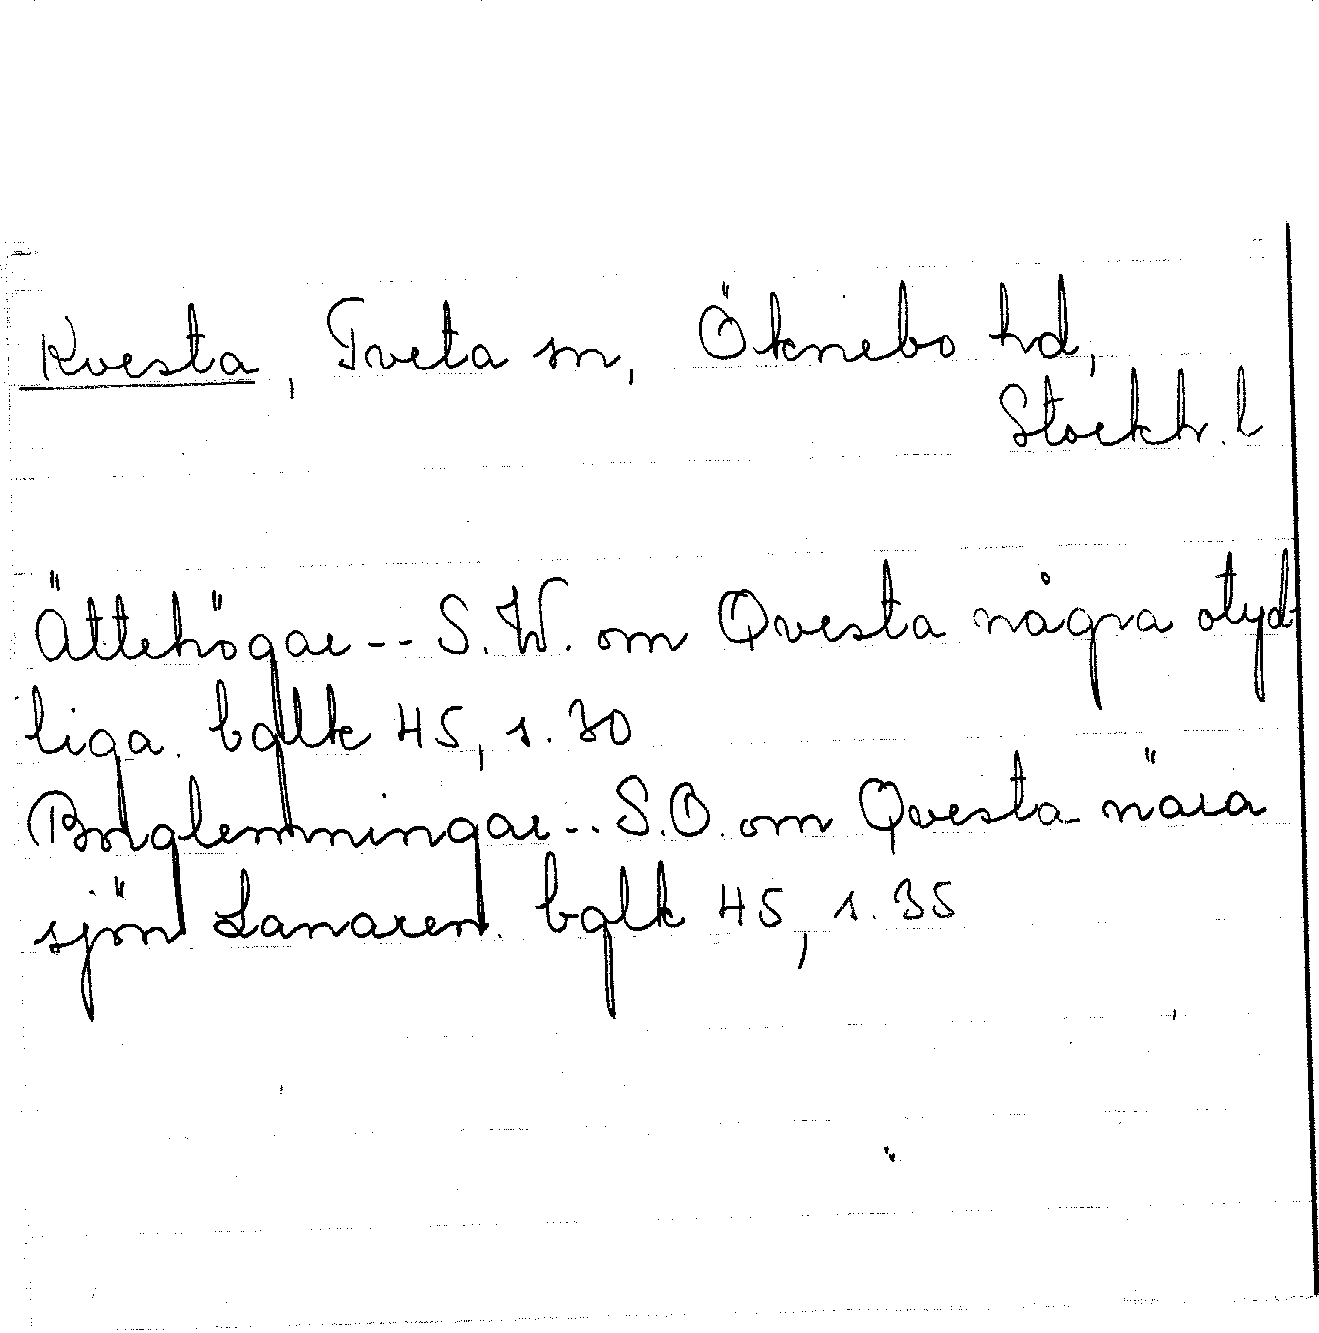 Kvesta, Tveta sn, Öknebo hd,
Stockh. l
Ättehögar -- S.W. om Qvesta några otyd-
liga. bglk 45, s. 30
Borglemningar -- S.O. om Qvesta nära
sjön Lanaren. bglk 45, s. 35